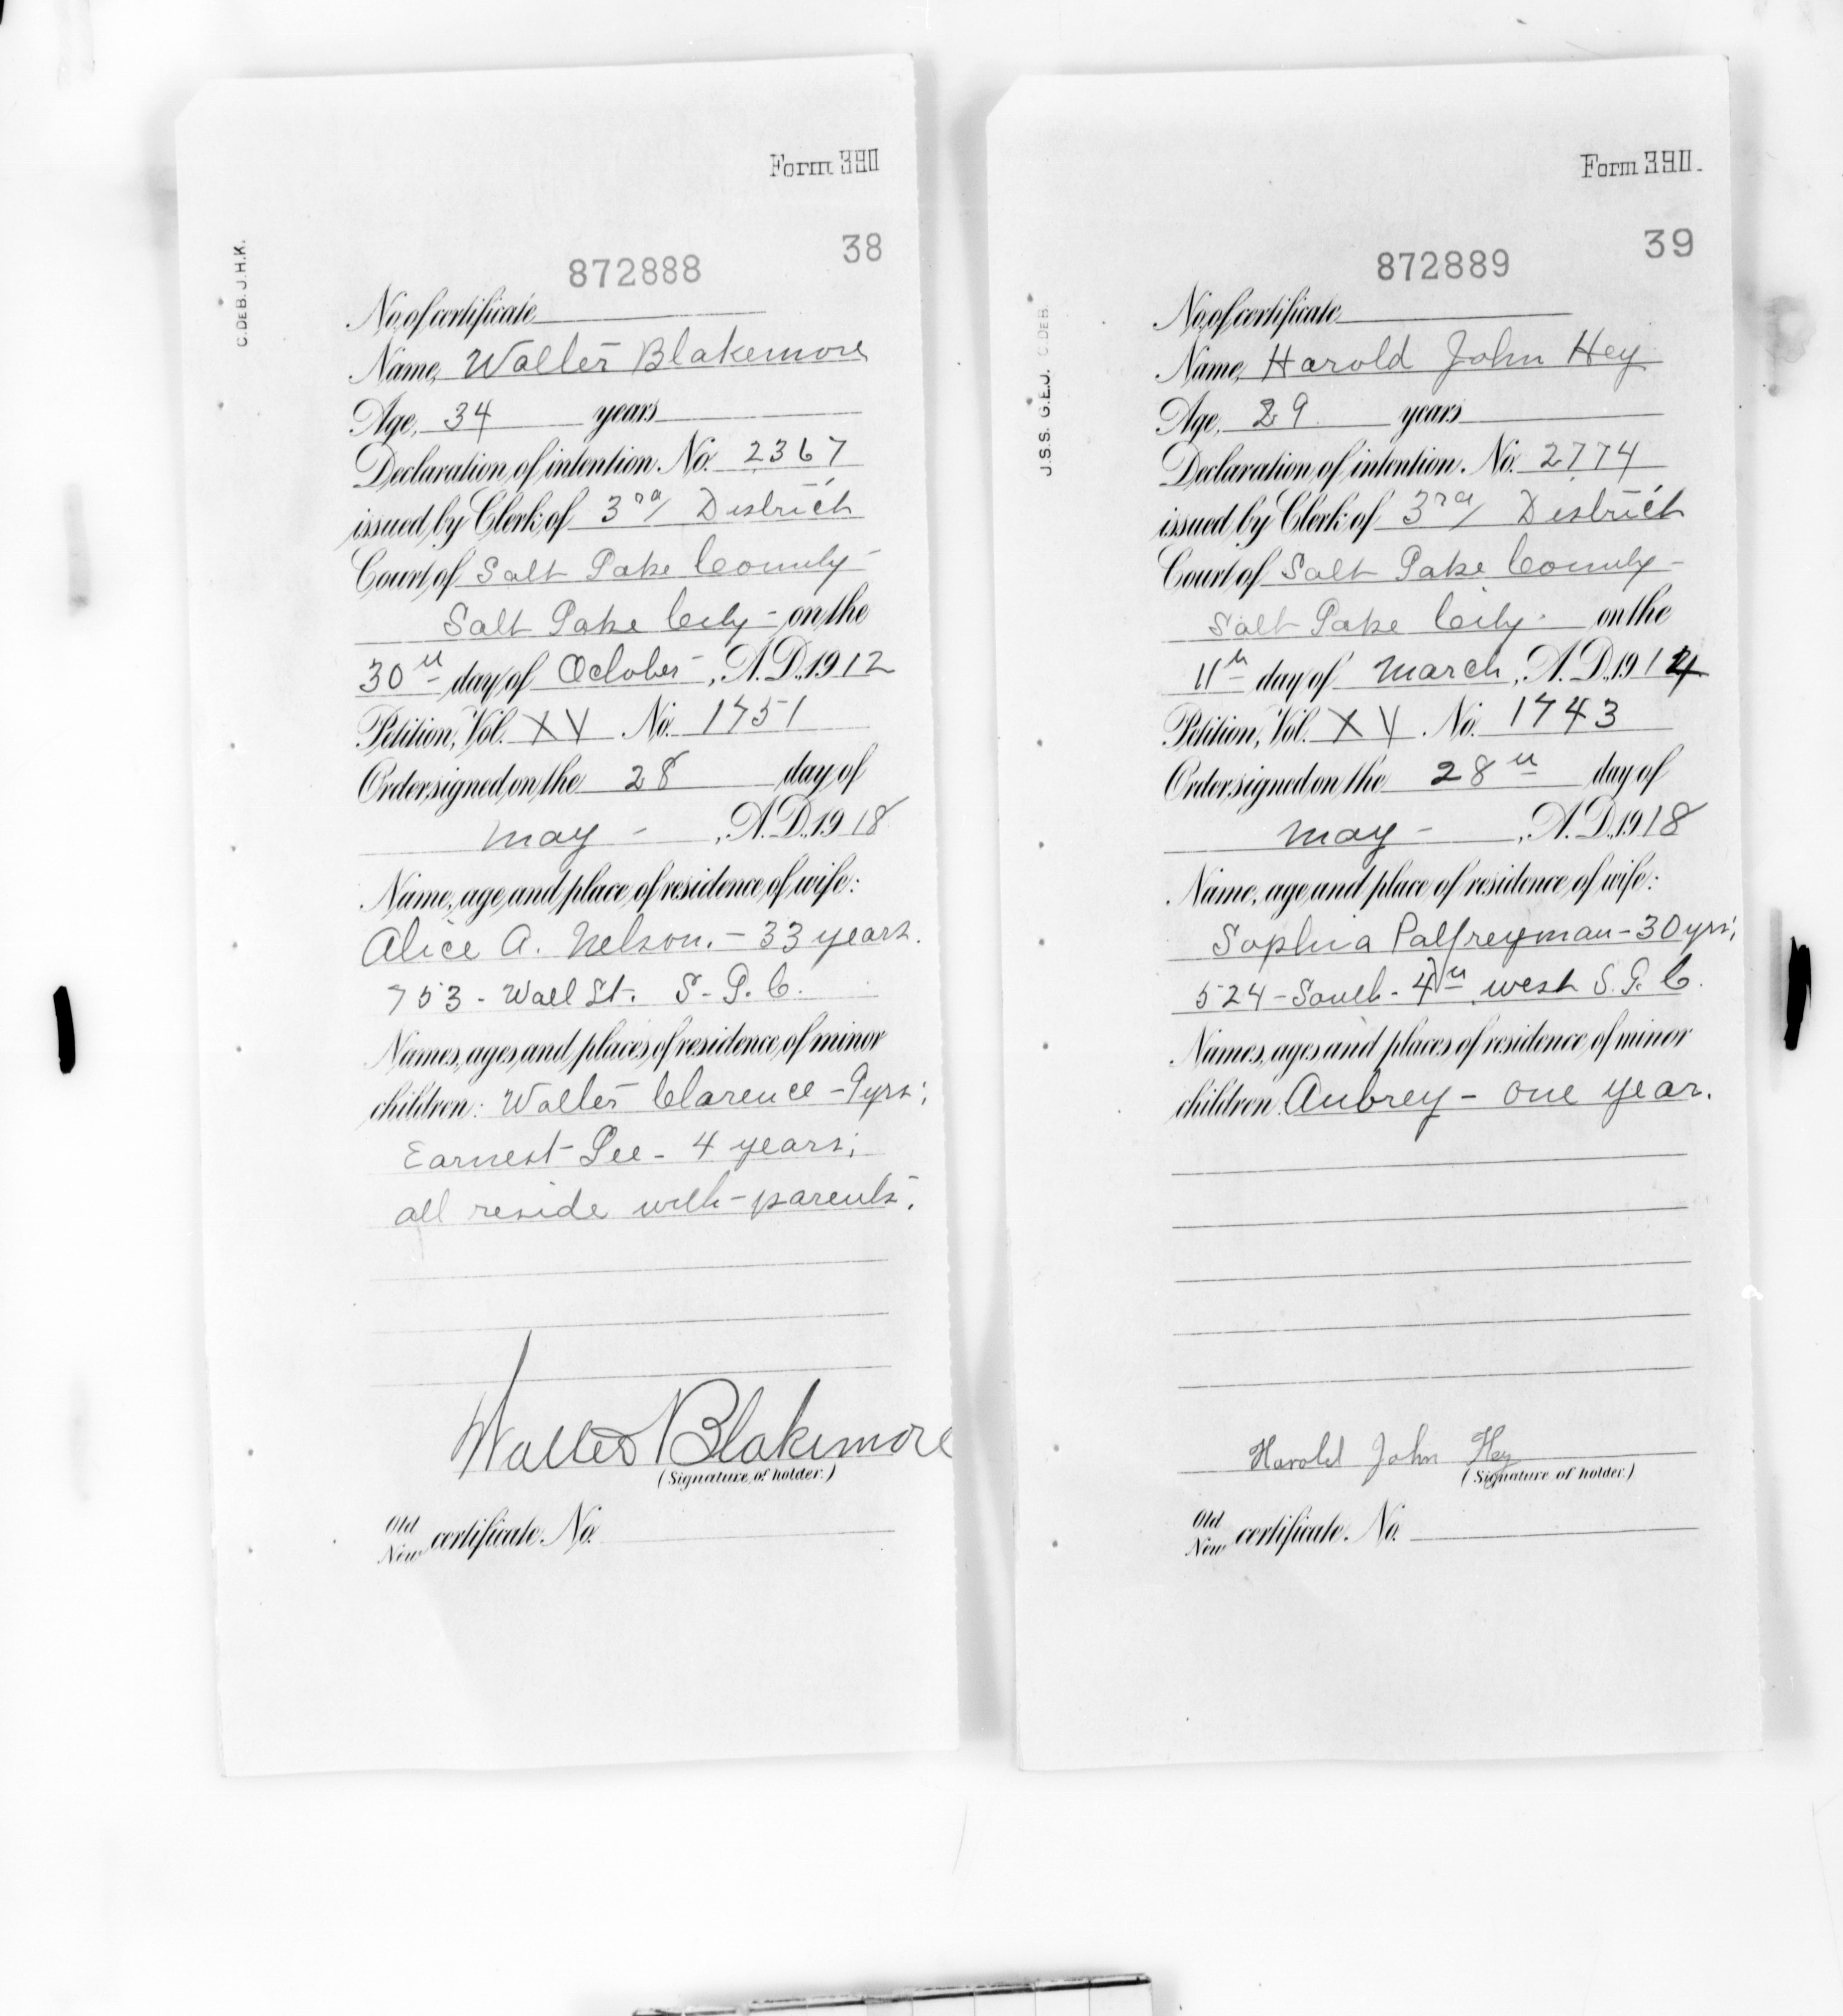 Form 330
38
872888
C. DE B. J.H.K.
No. of certificate
Name, Walter Blakemore
Age, 34 years
Declaration of intention. No. 2367
issued by Clerk of 3rd District
Court of Salt Lake County
Salt Lake City - on the
30th day of October, A.D. 1912
Petition, Vol. XV No. 1751
Order signed on the 28 day of
May - , A.D. 1918
Name, age and place of residence of wife:
Alice A. Nelson. - 33 years.
753 - Wall St. S. L. C.
Names, ages and places of residence of minor
children: Walter Clarence - 9 yrs;
Earnest Lee - 4 years;
all reside with parents.
Walter Blakemore
(Signature of holder.)
Old
New certificate. No.
Form 330.
39
872889
J.S.S. G.E.J. C. DE B.
No. of certificate
Name, Harold John Hey
Age, 29 years
Declaration of intention. No. 2774
issued by Clerk of 3rd District
Court of Salt Lake County -
Salt Lake City - on the
11th day of March, A.D. 1914
Petition, Vol. XV No. 1743
Order signed on the 28th day of
May - , A.D. 1918
Name, age and place of residence of wife:
Sophia Palfreyman - 30 yrs;
524 - South - 4th west S. L. C.
Names, ages and places of residence of minor
children Aubrey - one year.
Harold John Hey
(Signature of holder.)
Old
New certificate. No.